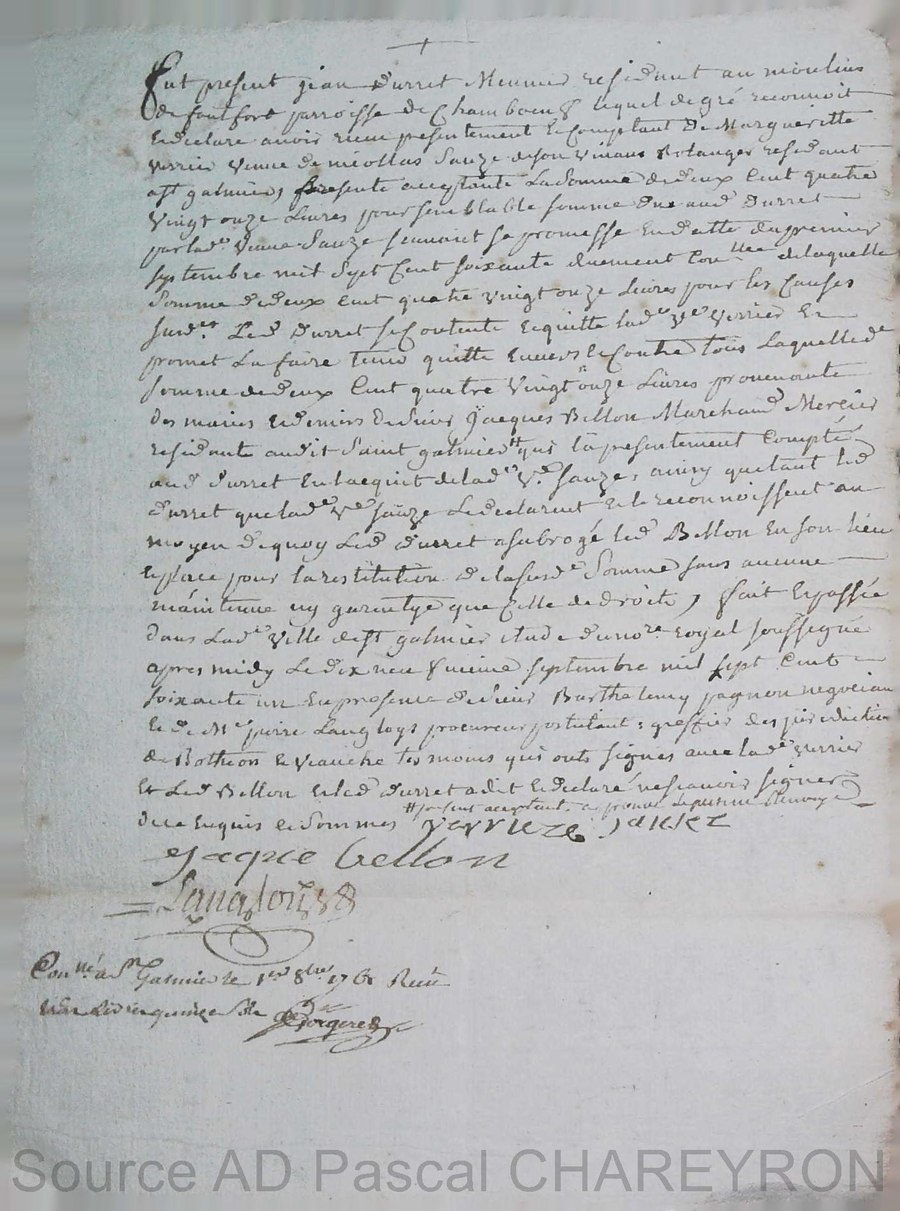 Fut present jean Durret Meunier residant au moulins
de fontfort parroisse de Chamboeuf lequel de gré reconnoit
et declare avoir receu presentement et comptant de Margueritte
verrier veuve de nicollas Sauze de son vivant Bolanger residant
a st galmier, presente acceptante La somme de deux Cent quatre
vingt onze Livres pour semblable somme due aud Durret
par lad.e veuve Sauze suivant sa promesse en datte du premier
septembre mil sept Cent soixante duement Con.llee de laquelle
somme de deux Cent quatre vingt onze Livres pour les Causes
susd.es Led Durret se Contente et quitte lad.e v.e verrier Et
promet La faire tenir quitte envers et Contre tous Laquelle d.e
somme de deux Cent quatre vingt onze Livres provenante
des mains et deniers de Sieur Jacques Bellon Marchand Mercier
residante audit Saint galmier # qui l'a presentement Compté
aud Durret en l'acquit de lad.e v.e Sauze, ainsy que tant led
Durret que lad.e v.e sauze Le declarent et le reconnoissent au
moyen de quoy Led Durret a subrogé led Bellon en son lieu
et place pour la restitution de la susd.e somme sans aucune
maintenue ny garentye que Celle de droit, fait et passée
dans Lad.e ville de st galmier etude du no.re royal soussigné
apres midy Le dix neufvieme septembre mil sept Cent
soixante un en presence de Sieur Barthelemy jagnon negociant
et de M.e pierre Langloys procureur postulant : greffier des jurisdiction
de Botheon et veauche temoins qui onts signés avec lad.e verrier
Et Led Bellon et led Durret a dit et declaré ne scavoir signer
de ce enquis et Sommes # present acceptant
verriere sauze
Jacque bellon
Langlois
Con.llé à S.t Galmier le 1.er 8bre 1761 Recu
Livre quinze Georgere
Source AD Pascal CHAREYRON